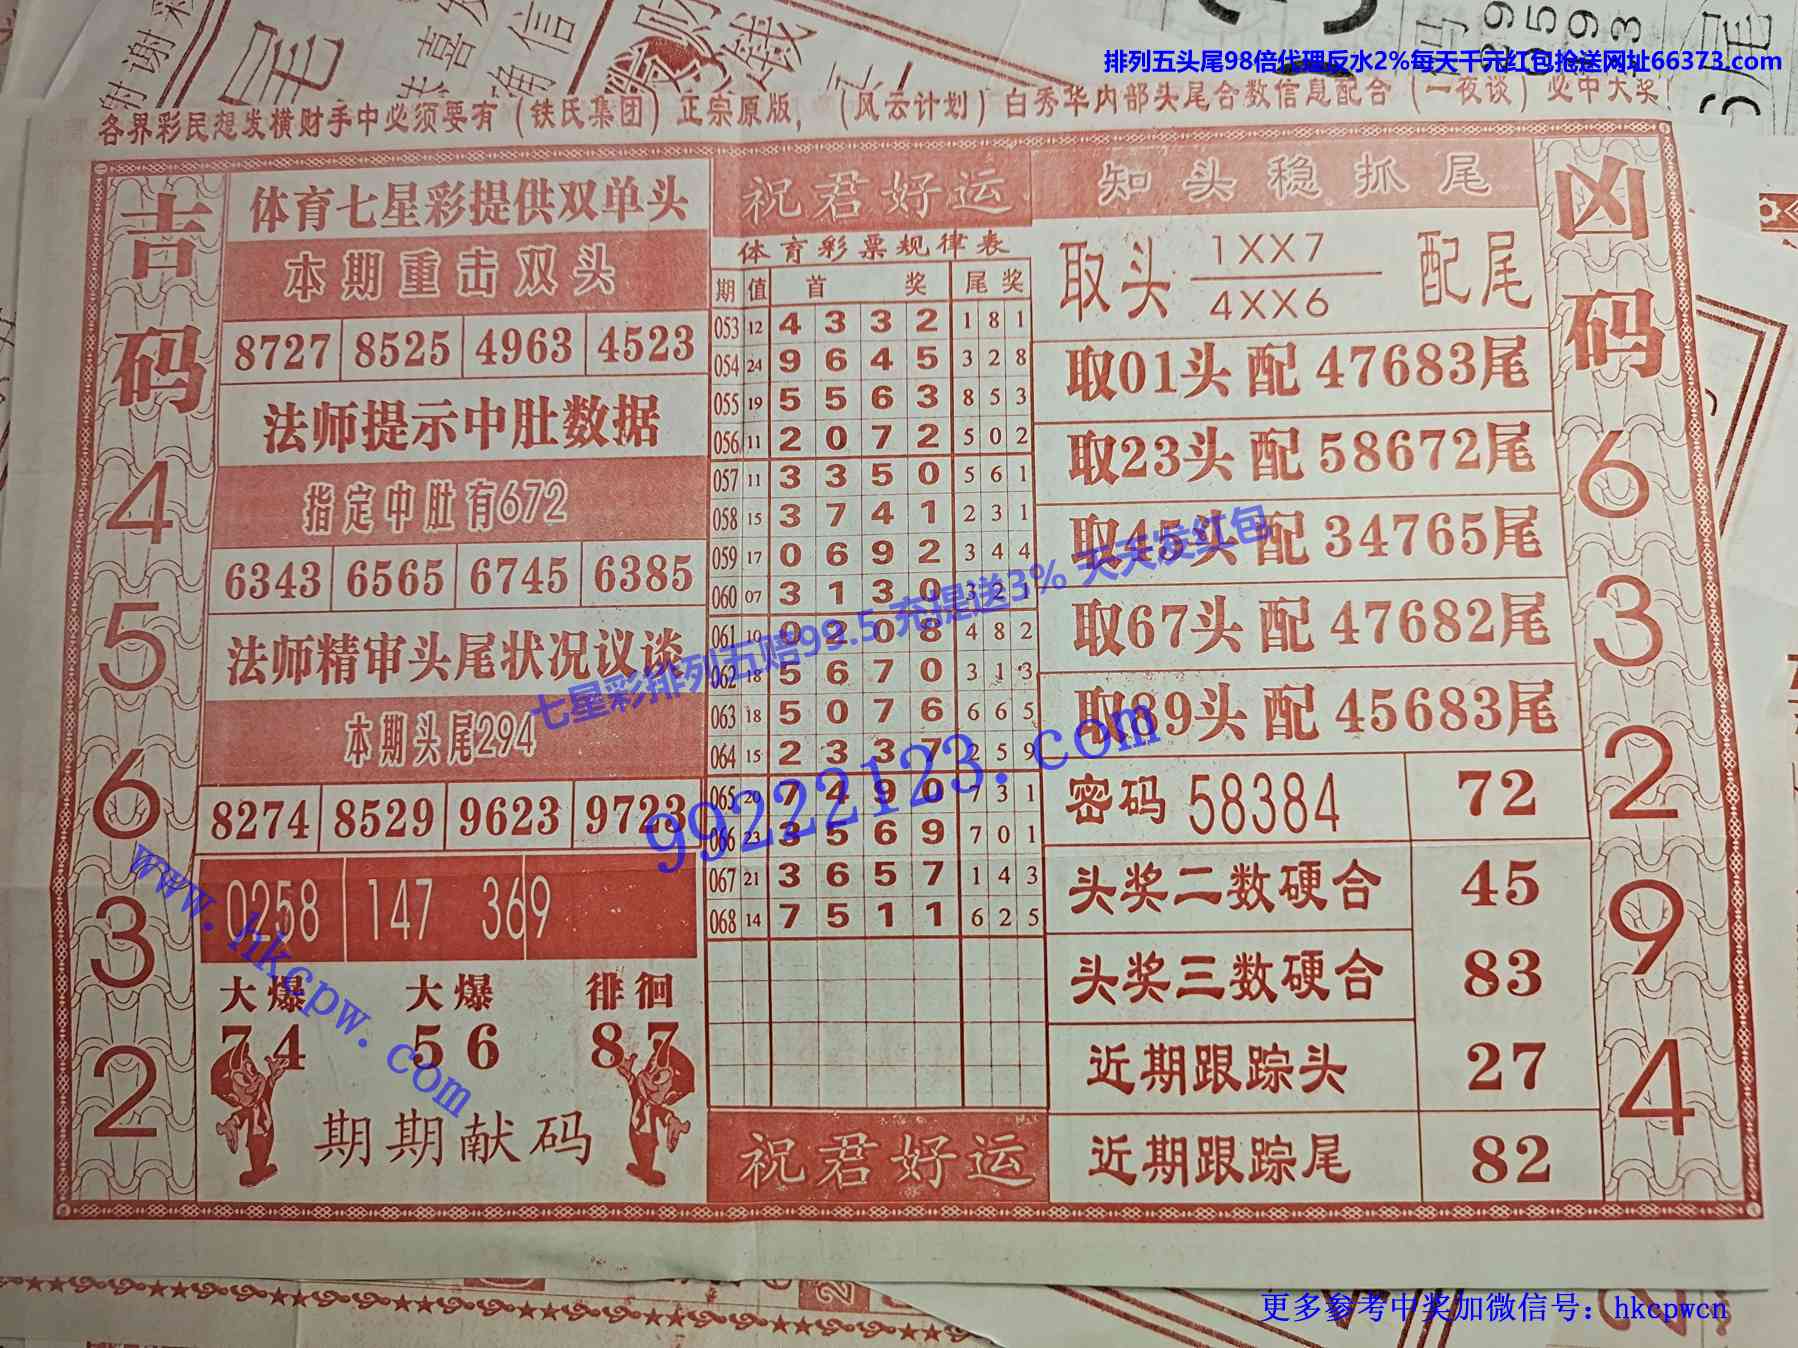 排列五头尾98倍代理反水2%每天千元红包抢送网址66373.com
各界彩民想发横财手中必须要有（铁氏集团）正宗原版，（风云计划）白秀华内部头尾合数信息配合（一夜谈）必中大奖！
吉码
4
5
6
3
2
体育七星彩提供双单头
本期重击双头
8727 8525 4963 4523
法师提示中肚数据
指定中肚有672
6343 6565 6745 6385
法师精审头尾状况议谈
本期头尾294
8274 8529 9623 9723
0258 147 369
大爆 大爆 徘徊
74 56 87
期期献码
祝君好运
体育彩票规律表
期 值 首奖 尾奖
053 12 4 3 3 2 1 8 1
054 24 9 6 4 5 3 2 8
055 19 5 5 6 3 8 5 3
056 11 2 0 7 2 5 0 2
057 11 3 3 5 0 5 6 1
058 15 3 7 4 1 2 3 1
059 17 0 6 9 2 3 4 4
060 07 3 1 3 0 3 2 1
061 10 0 2 0 8 4 8 2
062 18 5 6 7 0 3 1 3
063 18 5 0 7 6 6 6 5
064 15 2 3 3 7 2 5 9
065 20 7 4 9 0 7 3 1
066 23 3 5 6 9 7 0 1
067 21 3 6 5 7 1 4 3
068 14 7 5 1 1 6 2 5
祝君好运
知头稳抓尾
取头 1XX7 配尾
4XX6
取01头 配 47683尾
取23头 配 58672尾
取45头 配 34765尾
取67头 配 47682尾
取89头 配 45683尾
密码 58384 72
头奖二数硬合 45
头奖三数硬合 83
近期跟踪头 27
近期跟踪尾 82
凶码
6
3
2
9
4
七星彩排列五赔99.5 充提送3% 天天发红包
99222123.com
www.hkcpw.com
更多参考中奖加微信号：hkcpwcn